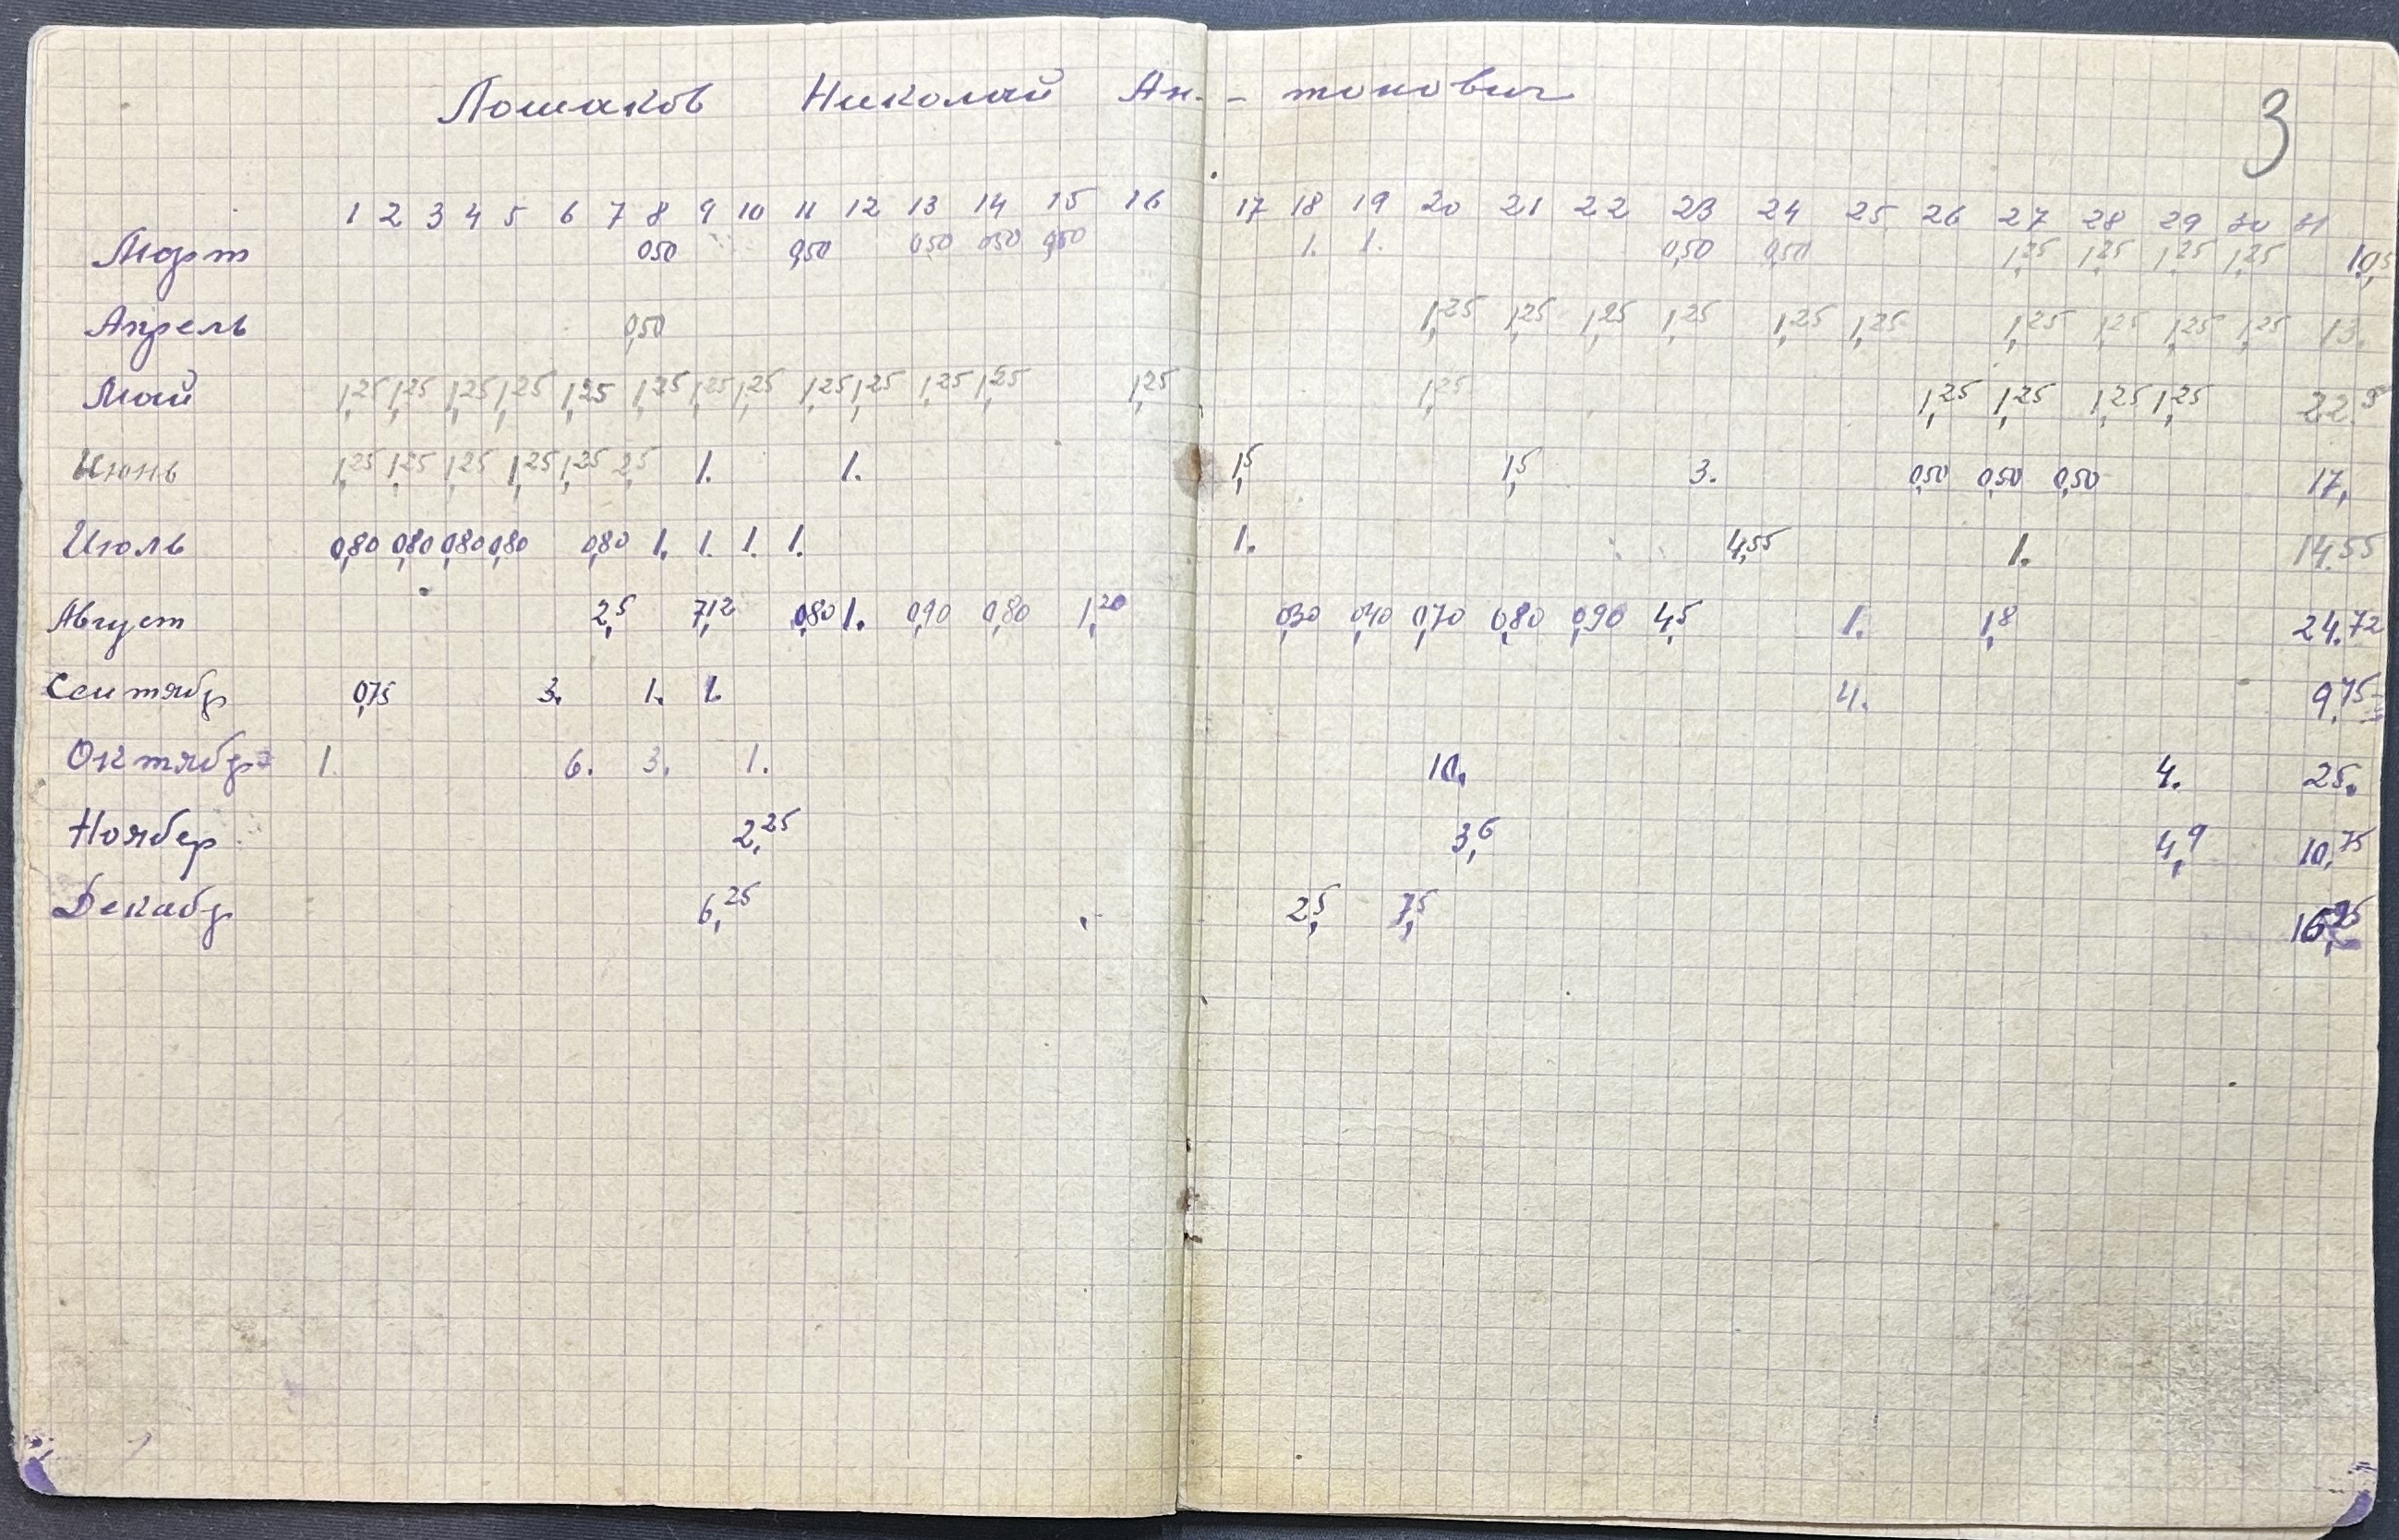 Лошаков Николай Ан- - тонович
3
1 2 3 4 5 6 7 8 9 10 11 12 13 14 15 16 17 18 19 20 21 22 23 24 25 26 27 28 29 30 31
Март 0,50 0,50 0,50 0,50 0,50 1. 1. 0,50 0,50 1,25 1,25 1,25 1,25 10,5
Апрель 0,50 1,25 1,25 1,25 1,25 1,25 1,25 1,25 1,25 1,25 1,25 13.
Май 1,25 1,25 1,25 1,25 1,25 1,25 1,25 1,25 1,25 1,25 1,25 1,25 1,25 1,25 1,25 1,25 1,25 1,25 22.5
Июнь 1,25 1,25 1,25 1,25 1,25 2,5 1. 1. 1,5 1,5 3. 0,50 0,50 0,50 17,
Июль 0,80 0,80 0,80 0,80 0,80 1. 1. 1. 1. 1. 4,55 1. 14.55
Август 2,5 7,12 0,80 1. 0,90 0,80 1,20 0,30 0,40 0,70 0,80 0,90 4,5 1. 1,8 24.72
Сентябр 0,75 3. 1. 1. 4. 9,75
Октябр 1. 6. 3. 1. 10. 4. 25.
Ноябер 2,25 3,6 4,9 10,75
Декабр 6,25 2,5 7,5 16,25